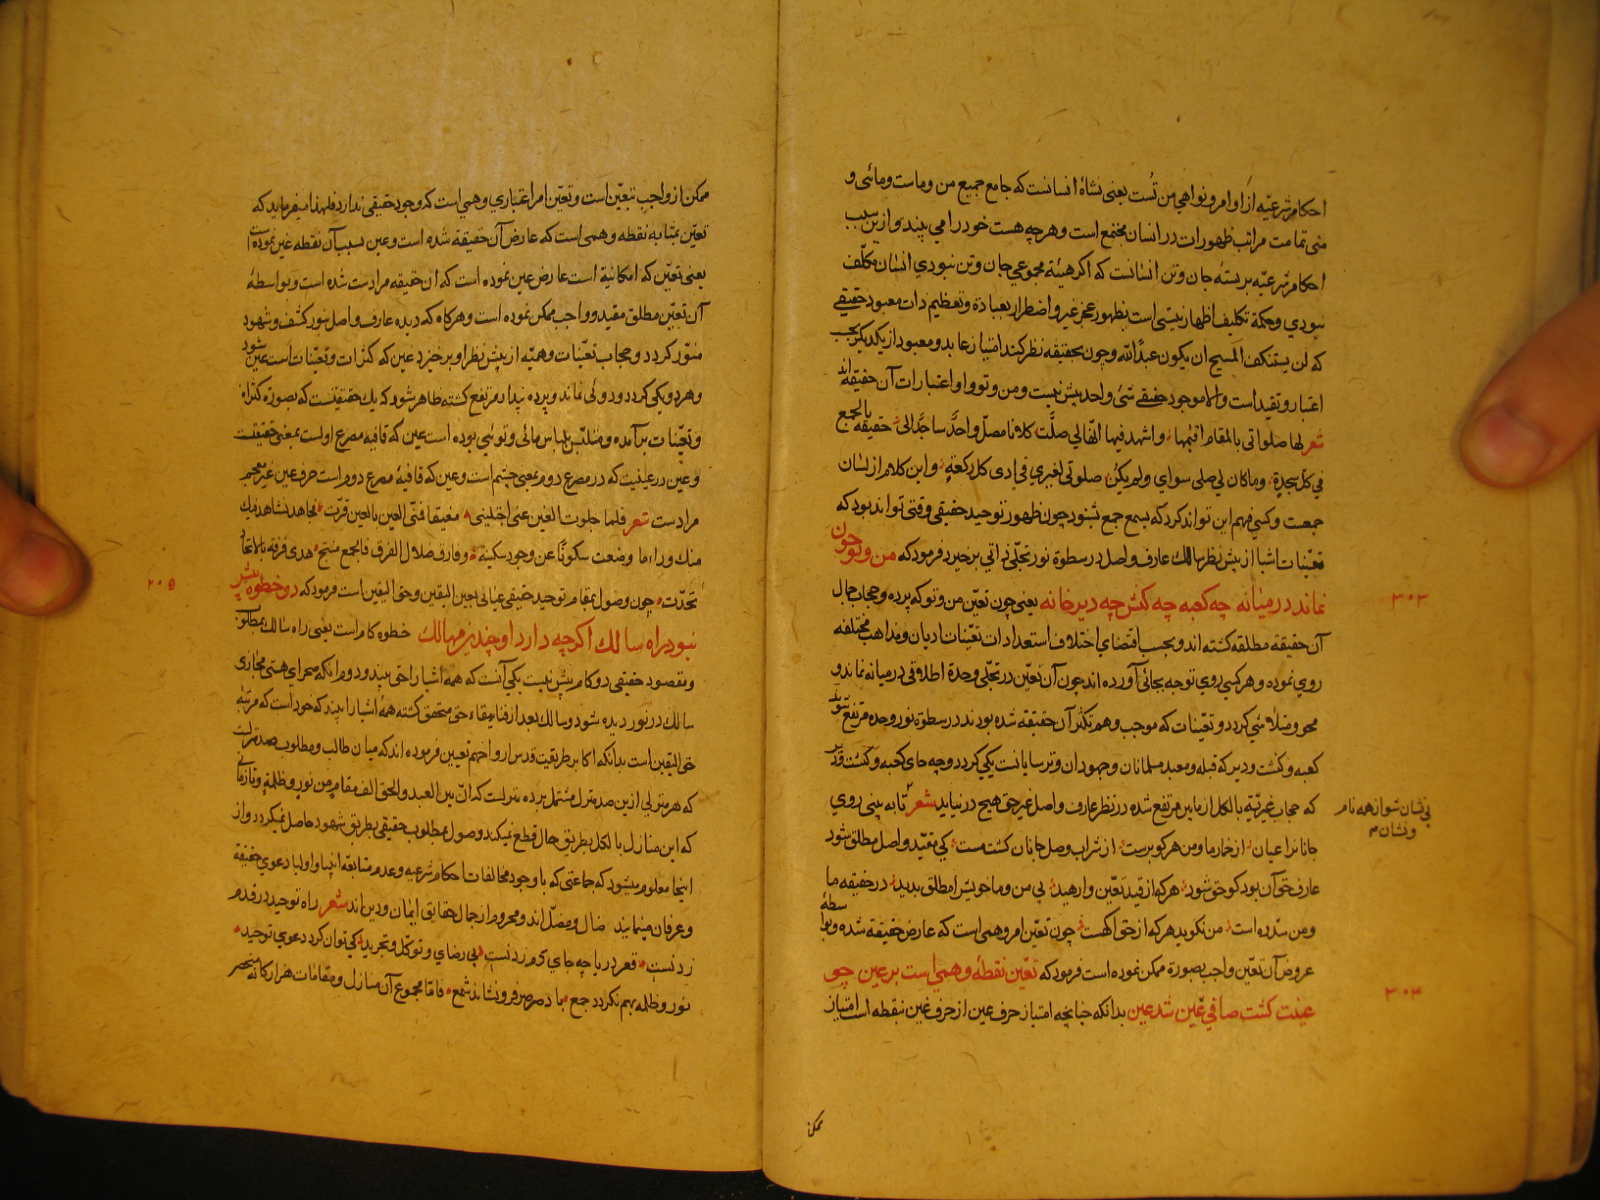 احکام شرعیه از اوامر و نواهی من تست یعنی نشاهٔ انسانست که جامع جمیع من و ماست و مائی و
منی تمامت مراتب ظهورات در انسان مجتمع است و هر چه هست خود را می بیند و ازین سبب
احکام شرعیه بر بستهٔ جان و تن انسانست که اکر هیئة مجموعی جان و تن نبودی انسان مکلف
نبودی و حکمة تکلیف اظهار نیستی است بظهور عجز غیر و اضطرار بعبادة و تعظیم ذات معبود حقیقی
که لن یستنکف المسیح ان یکون عبدا لله و چون بحقیقه نظر کنند امتیاز عابد و معبود از یکدیکر بحسب
اعتبار و تقید است و الا موجود حقیقی شئ واحد بیش نیست و من و تو و او اعتبارات آن حقیقه اند
شعر لها صلواتی بالمقام اقیمها و اشهد فیها انها لی صلت کلانا مصل واحد ساجد الی حقیقه بالجمع
فی کل سجدة و ما کان لی صلی سوای و لم یکن صلوتی لغیری فی ادی کل رکعة و این کلام از لسان
جمعت و کسی فهم این تواند کرد که بسمع جمع شنود چون ظهور توحید حقیقی وقتی تواند بود که
تعینات اشیا از پیش نظر سالک عارف واصل در سطوة نور تجلی ذاتی برخیزد فرمود که من و تو چون
نماند در میانه چه کعبه چه کنش چه دیر خانه یعنی چون تعین من و تو که پرده و حجاب جمال
آن حقیقه مطلقه کشته اند و بحسب اقتضای اختلاف استعدادات تعینات ادیان و مذاهب مختلفه
روی نموده و هر کسی روی توجه بجائی آورده اند چون آن تعین در تجلی وحدة اطلاقی در میانه نماند و
محو و متلاشی کردد و تعینات که موجب وهم تکثر آن حقیقه شده بودند در سطوة نور وحده مرتفع شوند
کعبه و کنشت و دیر که قبله و معبد مسلمانان و جهودان و ترسایانست یکی کردد و چه جای کعبه و کنشت و دیر
که حجاب غیریة بالکل از ما بین مرتفع شده در نظر عارف واصل غیر حق هیچ در نیاید شعر تا به بینی روی
جانانرا عیان از خار ما و من هر کو برست از شراب وصل جانان کشت مست کی تقید واصل مطلق شود
عارف حق آن بود کو حق شود هر که از قید تعین وارهید بی من و ما خویش را مطلق بدید در حقیقه ما
و من سد ره است من نکوید هر که از حق اکهست چون تعین امر وهمی است که عارض حقیقه شده و بواسطهٔ
عروض آن تعین واجب بصورة ممکن نموده است فرمود که تعین نقطه وهمی است بر عین چو
عینت کشت صافی غین شد عین بدانکه چنانچه امتیاز حرف عین از حرف غین بنقطه است امتیاز
۳۰۳
بی نشان شو از همه نام
و نشان م
۳۰۴
ممکن
ممکن از واجب بتعین است و تعین امر اعتباری وهمی است که وجود حقیقی ندارد فلهذا میفرماید که
تعین بمثابه نقطه وهمی است که عارض آن حقیقه شده است و عین بسبب آن نقطه غین نموده است
یعنی تعین که امکانیة است عارض عین نموده است که ان حقیقه مرادست شده است و بواسطهٔ
آن تعین مطلق مقید و واجب ممکن نموده است و هر کاه که دیده عارف واصل بنور کشف و شهود
منور کردد و حجاب تعینات وهمیه از پیش نظر او برخیزد عین که کثرات و تعینات است عین شود
و هر دو یکی کردد و دوئی نماند و پرده پندار مرتفع کشته ظاهر شود که یک حقیقتست که بصورة کثرات
و تعینات برآمده و متلبس بلباس مائی و توئی بوده است عین که قافیه مصرع اولست بمعنی حقیقت
و عین در عینیت که در مصرع دوم بمعنی چشم است و عین که قافیهٔ مصرع دوم است حرف عین غیر معجم
مرادست شعر فلما جلوت الغین عنی اجتلیتنی مفیقا فمنی العین بالعین قرت فجاهد تشاهد فیک
منک وراء ما وصفت سکونا عن وجود سکینه وفارق ضلال الفرق فالجمع منتج هدی فرقه بالاتحاد
تحدت چون وصول بمقام توحید حقیقی عیانی بعین الیقین و حق الیقین است فرمود که دو خطوه بیش
نبود راه سالک اکر چه دارد او چندین مهالک خطوه کام است یعنی راه سالک بمطلوب
و مقصود حقیقی دو کام بیش نیست یکی آنست که همه اشیا را حق بیند و دوم انکه صحرای هستی مجازی
سالک در نور دیده شود و سالک بعد از فنا ببقاء حق متحقق کشته همه اشیا را بیند که خود است که مرتبهٔ
حق الیقین است بدانکه اکابر طریقت قدس ارواحهم تعیین فرموده اند که میان طالب و مطلوب صد منزلست
که هر منزلی ازین صد منزل مشتمل بر ده منزلست که ان بین العبد و الحق الف مقام من نور و ظلمة و تا زمانی
که این منازل بالکل بطریق حال قطع نمیکند وصول بمطلوب حقیقی بطریق شهود حاصل نمیکردد و از
اینجا معلوم میشود که جماعتی که با وجود مخالفات احکام شرعیه و عدم متابعه انبیا و اولیا دعوی حقیقه
و عرفان مینمایند ضال و مضل اند و محروم از جمال حقایق ایمان و دین اند شعر راه توحید در قدم
زدنست قعر دریا چه جای دم زدنست بی رضای و توکل و تجرید کی توان کرد دعوی توحید
نور و ظلمه بهم نکردد جمع باد صرصر فرو نشاند شمع فاما مجموع آن منازل و مقامات هزار کانه منحصر
۳۰۵